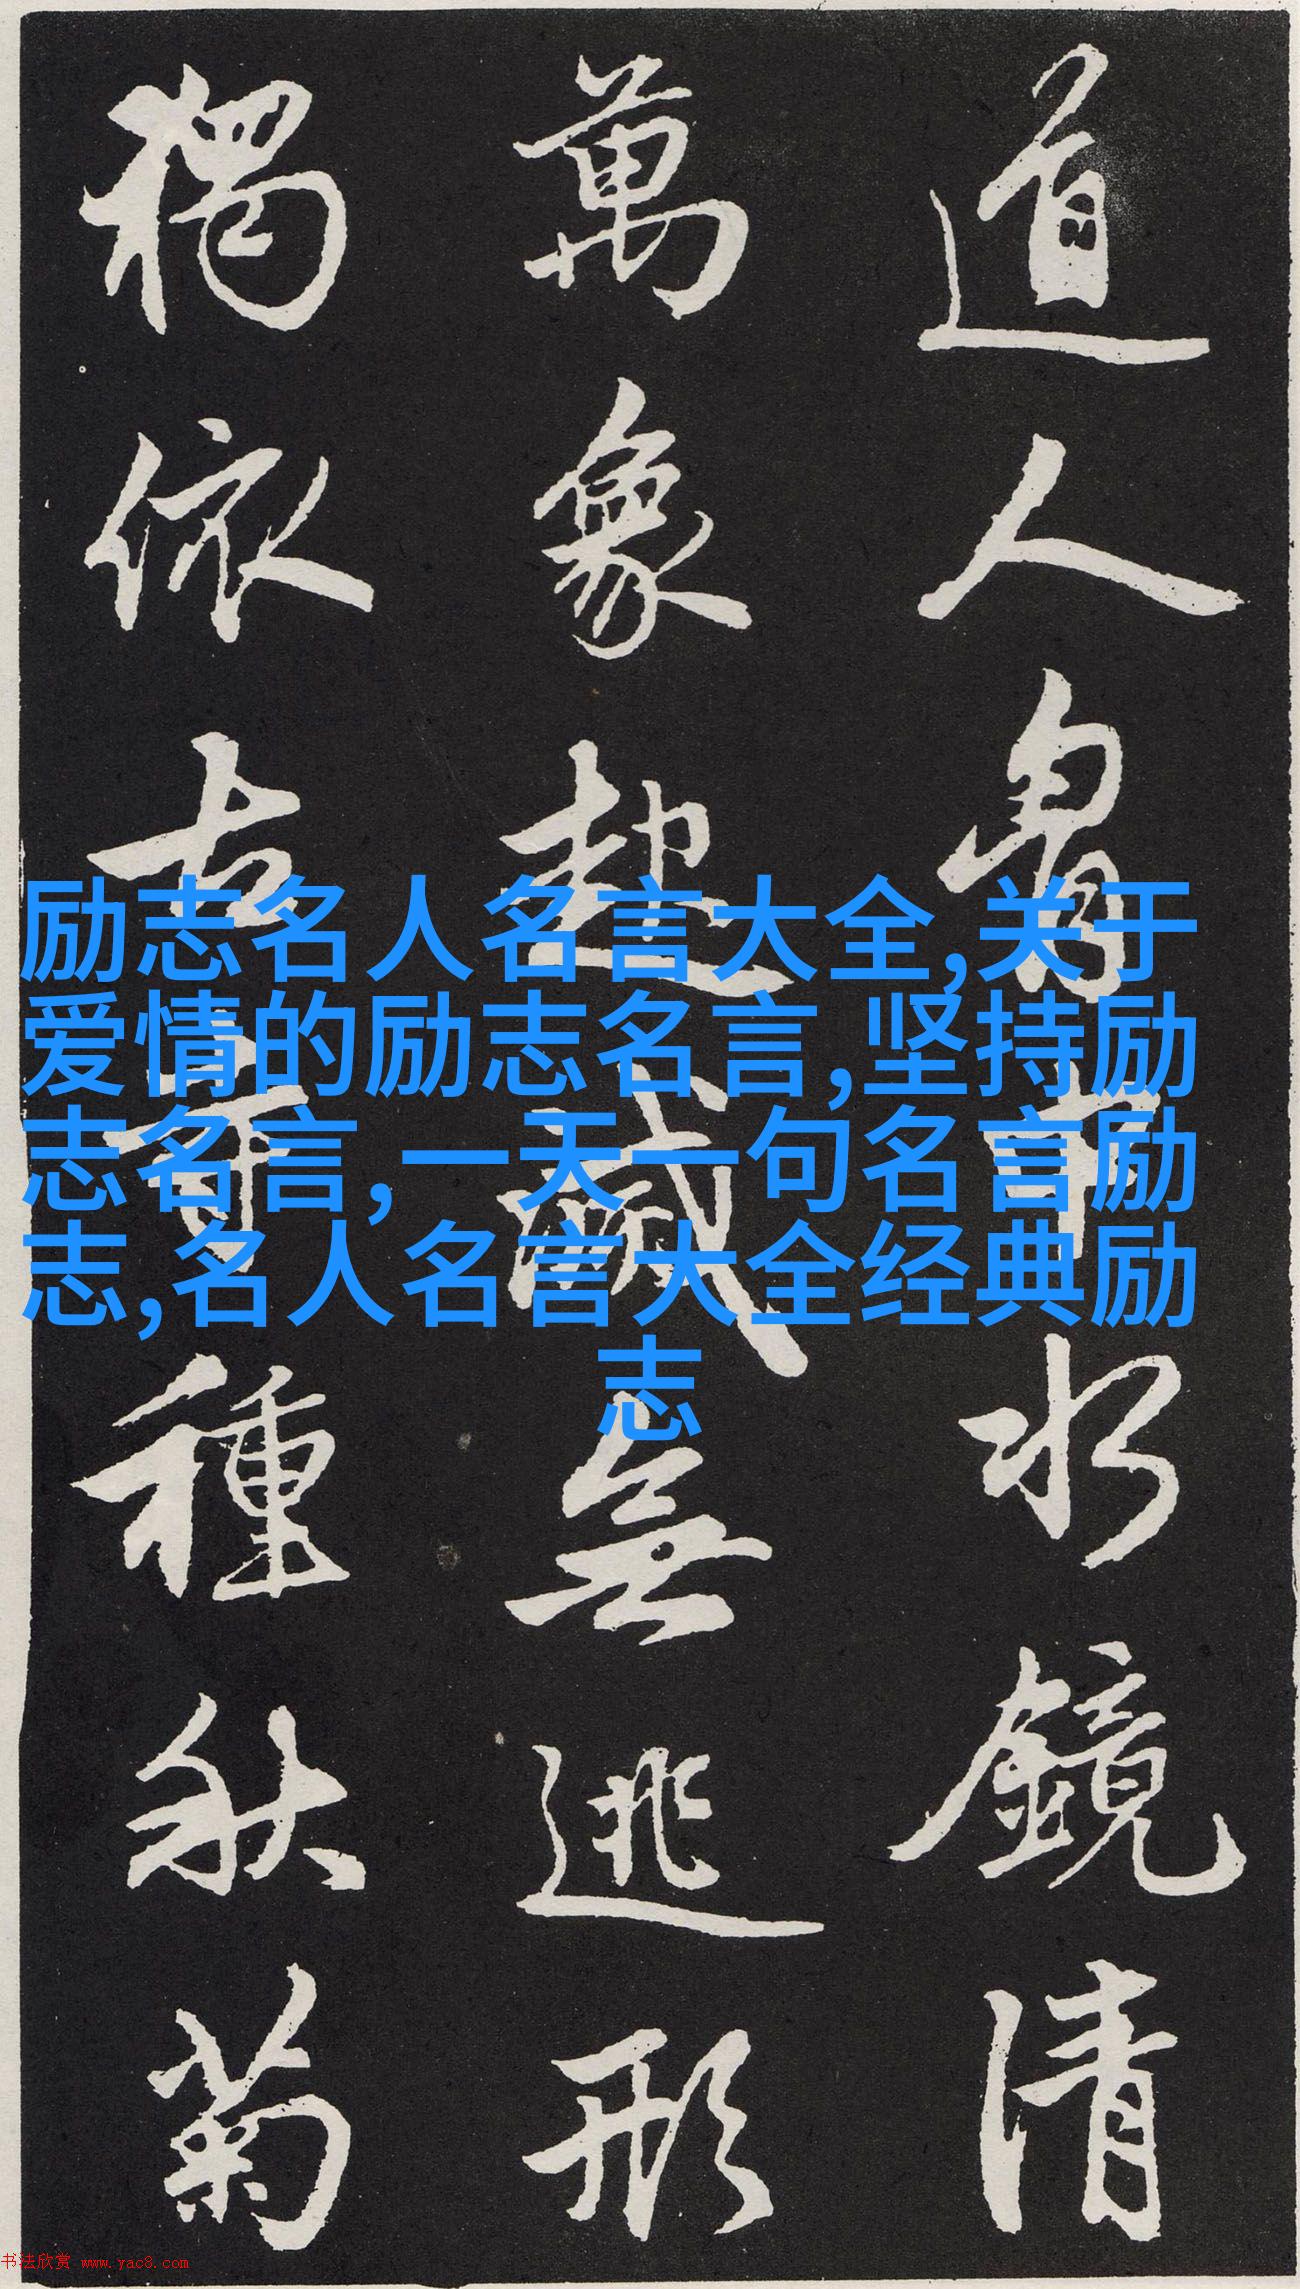 道人胷中水鏡清
萬象起滅無逃形
獨依古寺種秋菊
励志名人名言大全,关于
爱情的励志名言,坚持励
志名言,一天一句名言励
志,名人名言大全经典励
志
书法欣赏 www.yac8.com